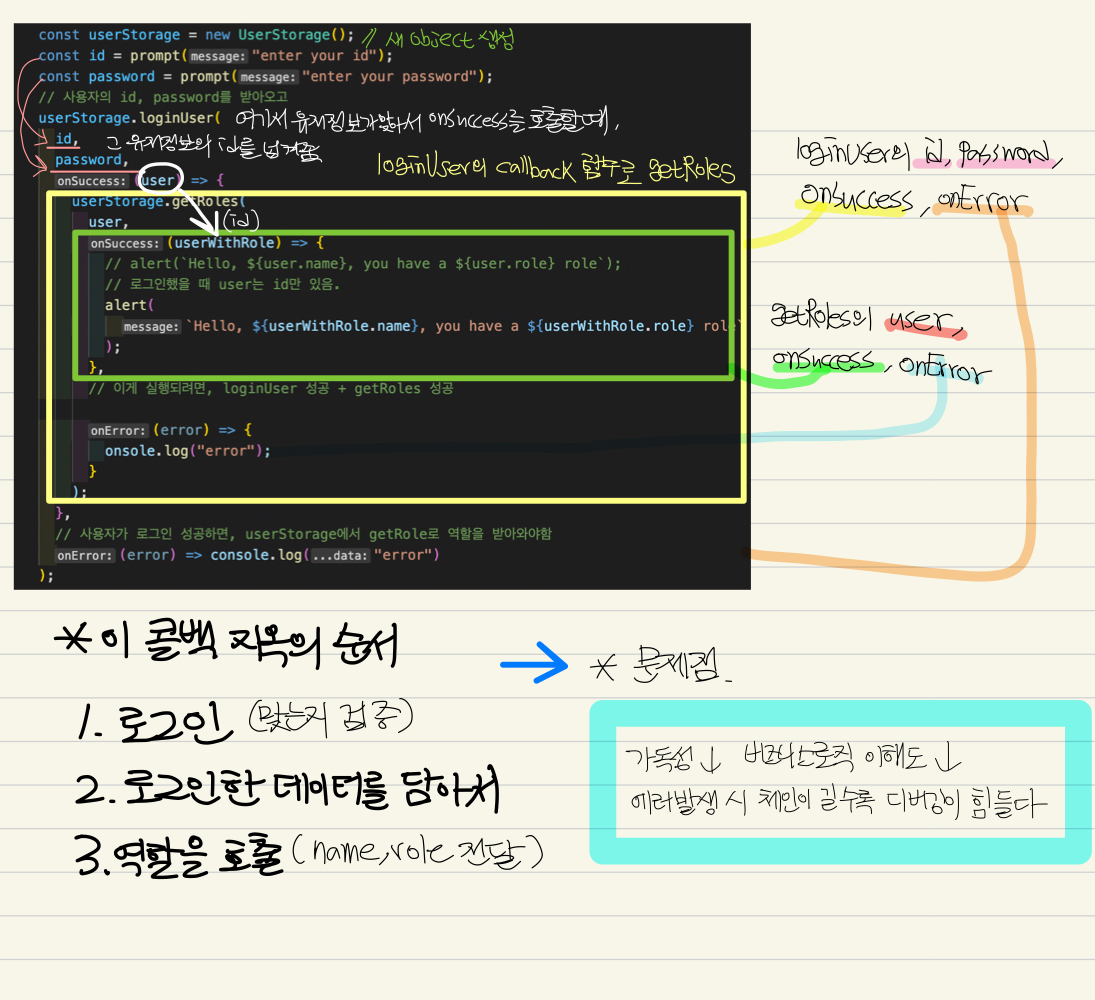 const userStorage = new UserStorage(); // 새 object 생성
const id = prompt( message: "enter your id");
const password = prompt( message: "enter your password");
// 사용자의 id, password를 받아오고
userStorage.loginUser( 여기서 유저정보가 맞아서 onSuccess를 호출할 때,
id, 그 유저정보의 id를 넘겨줌
password,
loginUser의 callback 함수로 getRoles
onSuccess: (user) => {
userStorage.getRoles(
user, (id)
onSuccess: (userWithRole) => {
// alert(`Hello, ${user.name}, you have a ${user.role} role`);
// 로그인했을 때 user는 id만 있음.
alert(
message: `Hello, ${userWithRole.name}, you have a ${userWithRole.role} role`
);
},
// 이게 실행되려면, loginUser 성공 + getRoles 성공
onError: (error) => {
onsole.log("error");
}
);
},
// 사용자가 로그인 성공하면, userStorage에서 getRole로 역할을 받아와야함
onError: (error) => console.log( ...data: "error")
);
loginUser의 id, password,
onSuccess, onError
getRoles의 user,
onSuccess, onError
* 이 콜백 지옥의 순서
1. 로그인 (맞는지 검증)
2. 로그인한 데이터를 담아서
3. 역할을 호출 (name, role 전달)
→ * 문제점.
가독성 ↓ 비즈니스로직 이해도 ↓
에러발생 시 체인이 길수록 디버깅이 힘들다